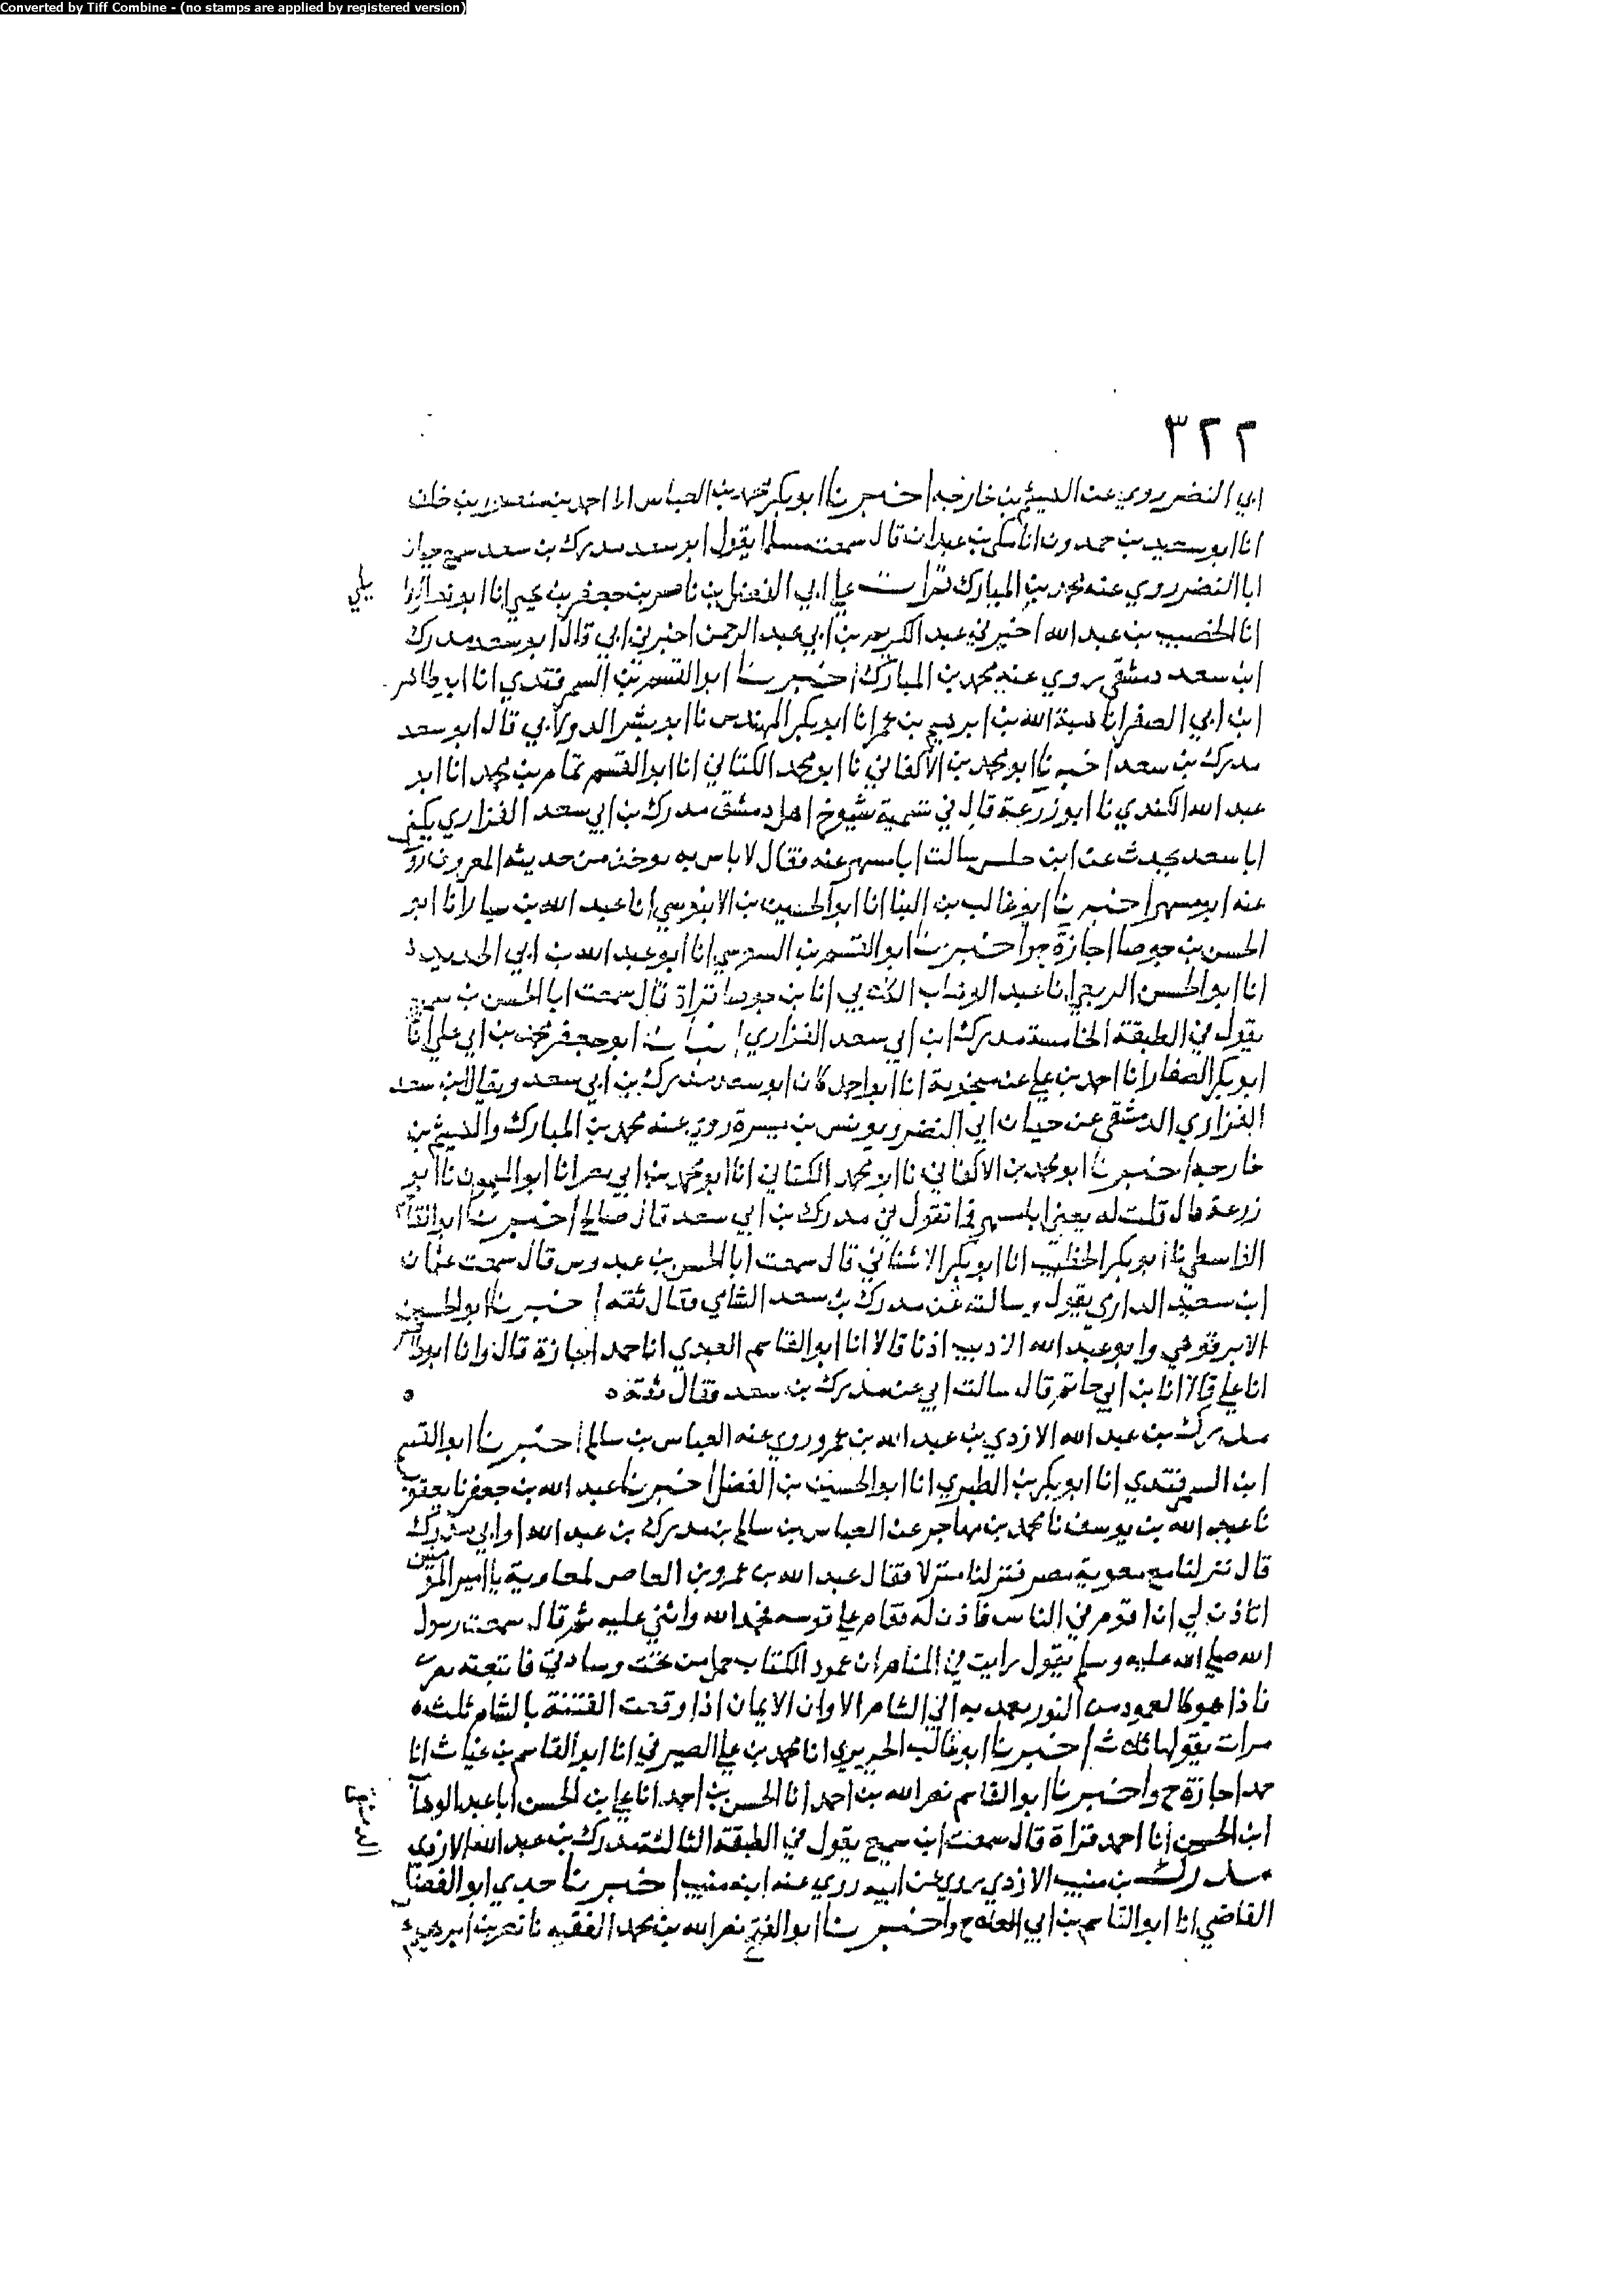 Converted by Tiff Combine - (no stamps are applied by registered version)
٣٢٢
ابي النضر روي عنه الهيثم بن خارجه اخبرنا ابو بكر محمد بن العباس انا احمد بن منصور بن خلف
انا ابو سعيد بن حمدون انا مكي بن عبدان قال سمعت مسلما يقول ابو سعد مدرك بن سعد سمع حيان
ابا النضر روي عنه محمد بن المبارك قرات علي ابي الفضل بن ناصر بن جعفر بن يحيى انا ابو نصر الوا
يلي
انا الخصيب بن عبد الله اخبرني عبد الكريم بن ابي عبد الرحمن اخبرني ابي قال ابو سعد مدرك
ابن سعد دمشقي روي عنه محمد بن المبارك اخبرنا ابو القسم بن السمرقندي انا ابو طاهر
ابن ابي الصقر انا هبة الله بن ابرهيم بن عمر انا ابو بكر المهندس نا ابو بشر الدولابي قال ابو سعد
مدرك بن سعد اخبرنا ابو محمد بن الاكفاني نا ابو محمد الكتاني انا ابو القسم تمام بن محمد انا ابو
عبد الله الكندي نا ابو زرعة قال في تسمية شيوخ اهل دمشق مدرك بن ابي سعد الفزاري يكنى
ابا سعد يحدث عن ابن حلبس سالت ابا مسهر عنه فقال لا باس به يوخذ من حديثه المعروف روي
عنه ابو مسهر اخبرنا ابو غالب بن البنا انا ابو الحسين بن الابنوسي انا عبد الله بن انا ابو
الحسن بن جوصا اجازة ح واخبرنا ابو القسم بن السوسي انا ابو عبد الله بن ابي الحديد
انا ابو الحسن الربعي انا عبد الوهاب الكلابي انا بن جوصا قراة قال سمعت ابا الحسن بن سميع
يقول في الطبقة الخامسة مدرك ابن ابي سعد الفزاري انبانا ابو جعفر محمد بن ابي علي انا
ابو بكر الصفار انا احمد بن علي بن منجوية انا ابو احمد قال ابو سعد مدرك بن ابي سعد ويقال ابن سعد
الفزاري الدمشقي عن حيان ابي النضر ويونس بن ميسرة روي عنه محمد بن المبارك والهيثم بن
خارجه اخبرنا ابو محمد بن الاكفاني نا ابو محمد الكتاني انا ابو محمد بن ابي نصر انا ابو الميمون نا ابو
زرعة قال قلت له يعني ابا مسهر فما تقول في مدرك بن ابي سعد قال صالح اخبرنا ابو القاسم
الواسطي نا ابو بكر الخطيب انا ابو بكر الاشناني قال سمعت ابا الحسن بن عبدوس قال سمعت عثمان
ابن سعيد الداري يقول وسالته عن مدرك بن سعد الشامي فقال ثقه اخبرنا ابو الحسين
الابرقوهي وابو عبد الله الاديب اذنا قالا انا ابو القاسم العبدي انا حمد اجازة قال وانا ابو طاهر
انا علي قالا انا بن ابي حاتم قال سالت ابي عن مدرك بن سعد فقال ثقة ه ه
مدرك بن عبد الله الازدي بن عبد الله بن عمرو روي عنه العباس بن سالم اخبرنا ابو القسم
ابن السمرقندي انا ابو بكر بن الطبري انا ابو الحسين بن الفضل اخبرنا عبد الله بن جعفر نا يعقوب
نا عبد الله بن يوسف نا محمد بن مهاجر عن العباس بن سالم بن مدرك بن عبد الله او ابي مدرك
قال نزلنا مع معوية مصر فنزلنا منزلا فقال عبد الله بن عمرو بن العاص لمعاوية يا امير المومنين
اتاذن لي ان اقوم في الناس فاذن له فقام علي قوسه فحمد الله واثني عليه ثم قال سمعت رسول
الله صلي الله عليه وسلم يقول رايت في المنام ان عمود الكتاب حمل من تحت وسادتي فاتبعته بصري
فاذا هو كالعمود من النور يعمد به الي الشام الا وان الايمان اذا وقعت الفتنة بالشام ثلثه
مرات يقولها ثلاث اخبرنا ابو غالب الحريري انا محمد بن علي الصيرفي انا ابو القاسم بن عتاب انا
احمد اجازة ح واخبرنا ابو القاسم نصر الله بن احمد انا الحسن بن احمد انا علي بن الحسن ابا عبد الوهاب
ابن الحسن انا احمد قراة قال سمعت ابن سميع يقول في الطبقة الثالثة مدرك بن عبد الله الازدي
الدمشقي
مدرك بن منيب الازدي يروي عن ابيه روي عنه ابنه منيب اخبرنا جدي ابو الفضل
القاضي انا ابو القاسم بن ابي العلاء ح واخبرنا ابو الفتح نصر الله بن محمد الفقيه نا نصر بن ابرهيم